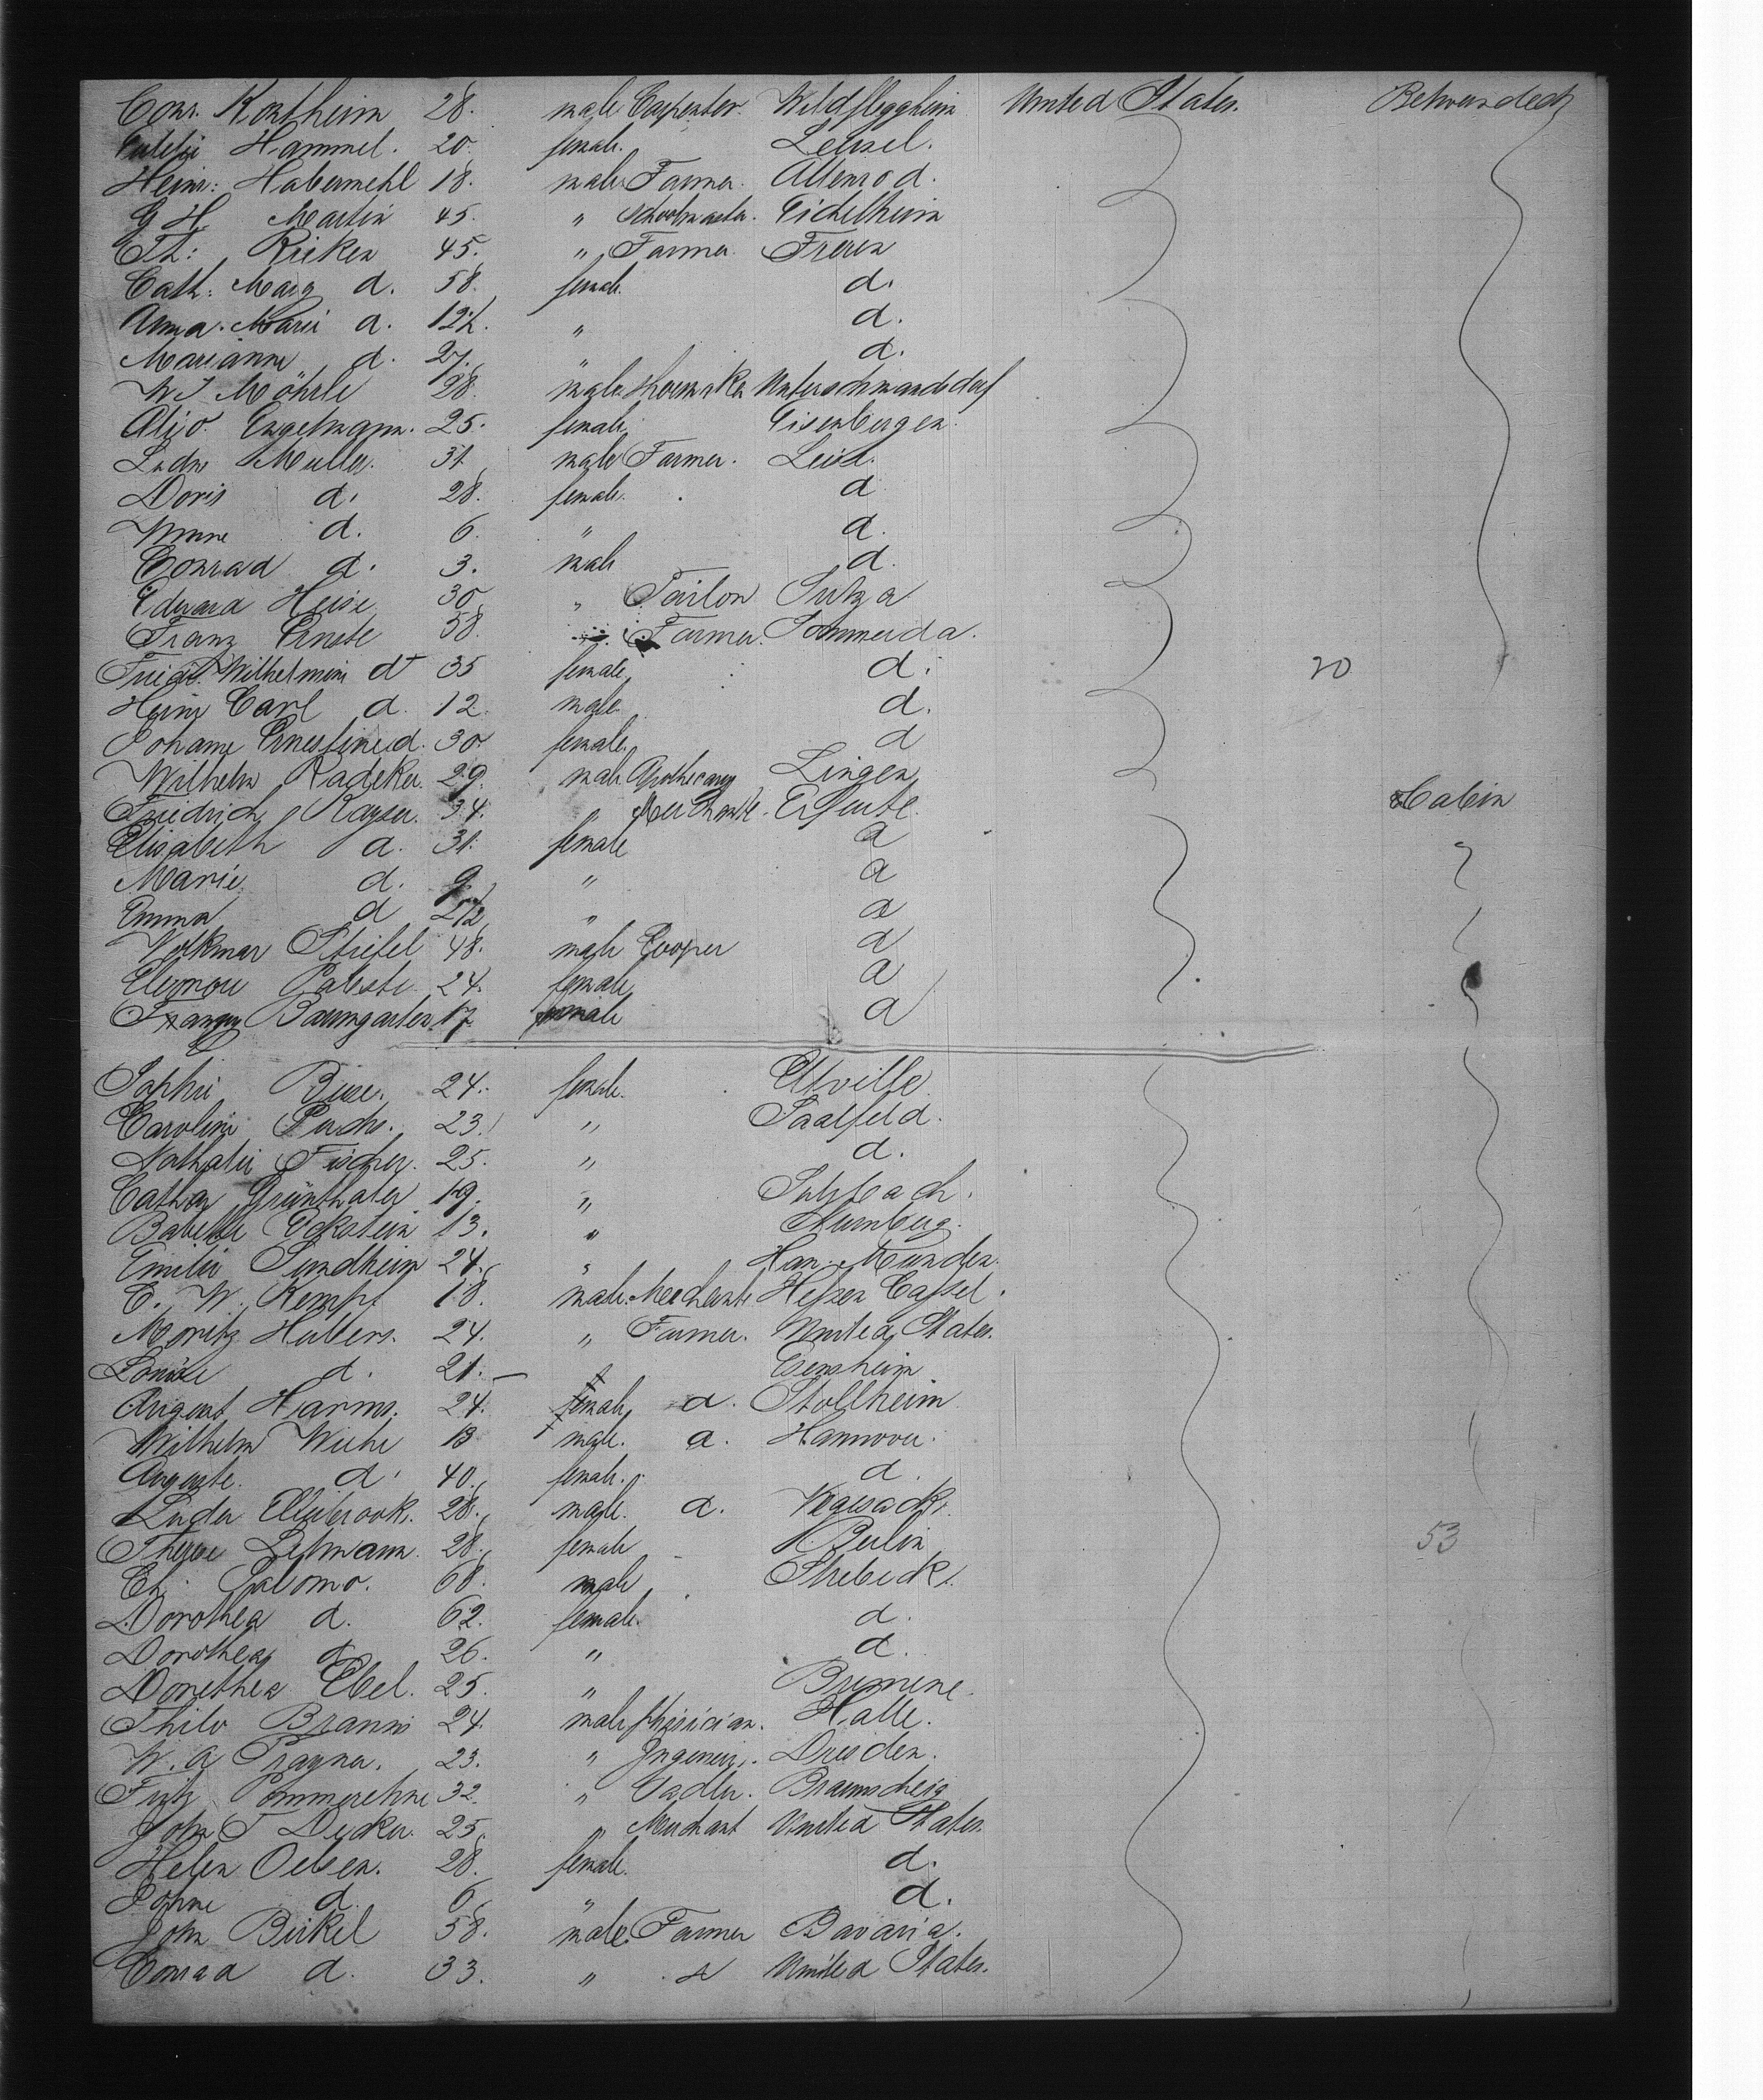 Conr. Kontheim 28. male Carpenter. United States. Betweendeck
Hammel. 20. female. Leusel.
Heinr: Habermehl 18. male Farmer. Altenrod.
G H Martin 45. " Schoolmaster. Eichelheim
Th: Ricken 45. " Farmer. Freren
Cath: Marg d. 58. female. d.
Anna Marie d. 12 1/2. " d.
Marianne d. 27. " d.
W J Möhrle 28. male Shoemaker
Engelmann. 25. female. Eisenbergen.
Ludw Muller. 31 male Farmer. Leisd.
Doris d. 28. female. d
Minne d. 6. " d.
Conrad d. 3. male d.
Edward Heise 30 " Tailor Sulza
Franz Ernste 58. Farmer. Sommerda.
Friedr. Wilhelmine d 35 female d. 20
Heinr Carl d. 12. male d.
Johanne Ernestine d. 30 female. d
Wilhelm Radeker. 29. male Apothecary Lingen
Friedrich Kayser. 34. " Merchante. Erfurte. Cabin
Elisabeth d. 31. female d
Marie d. 9 " d
Emma d 2 1/2 " d
Volkmar Striefel 48. male Cooper d
Eleonore Pabste 24. female d
Baumgarten 17 d
Sophie Buse. 24. female. Elville
Caroline Puchs. 23. " Saalfeld.
Nathalie Fischer. 25. " d.
Cathar Grünthaler 19. " Sulzbach.
Babette Eckstein 13. " Nurnberg.
Emilie Sundheim 24. " Han. Munden.
C. W. Kempf 18. male. Merchante Hessen Cassel.
Moritz Hullers. 24. " Farmer. United States.
Louise d. 21. Esensheim
August Harms. 24. female d. Stollheim
Wilhelm Wiehe 13 male. d. Hannover.
Auguste. d. 40. female. d.
Luder Ellebrook. 28. male. d. Vegesack.
Therese Lehmann. 28. female Berlin 53
Ch. Salomo. 68. male Strebeck.
Dorothea d. 62. female. d.
Dorothea d. 26. " d.
Dorethea Ebel. 25. " Bremene.
Thilo Branns 24. male phisician. Halle.
W. A Pragner. 23. " Ingeneur. Dresden.
Fritz Pommerehne 32. " Sadler. Braunscheig
John T Decker. 25. " Merchant United States.
Helen Oelsen. 28. female. d.
Johne d. 6. " d.
John Birkel 58. male. Farmer Bavaria.
Conrad d. 33. " d United States.